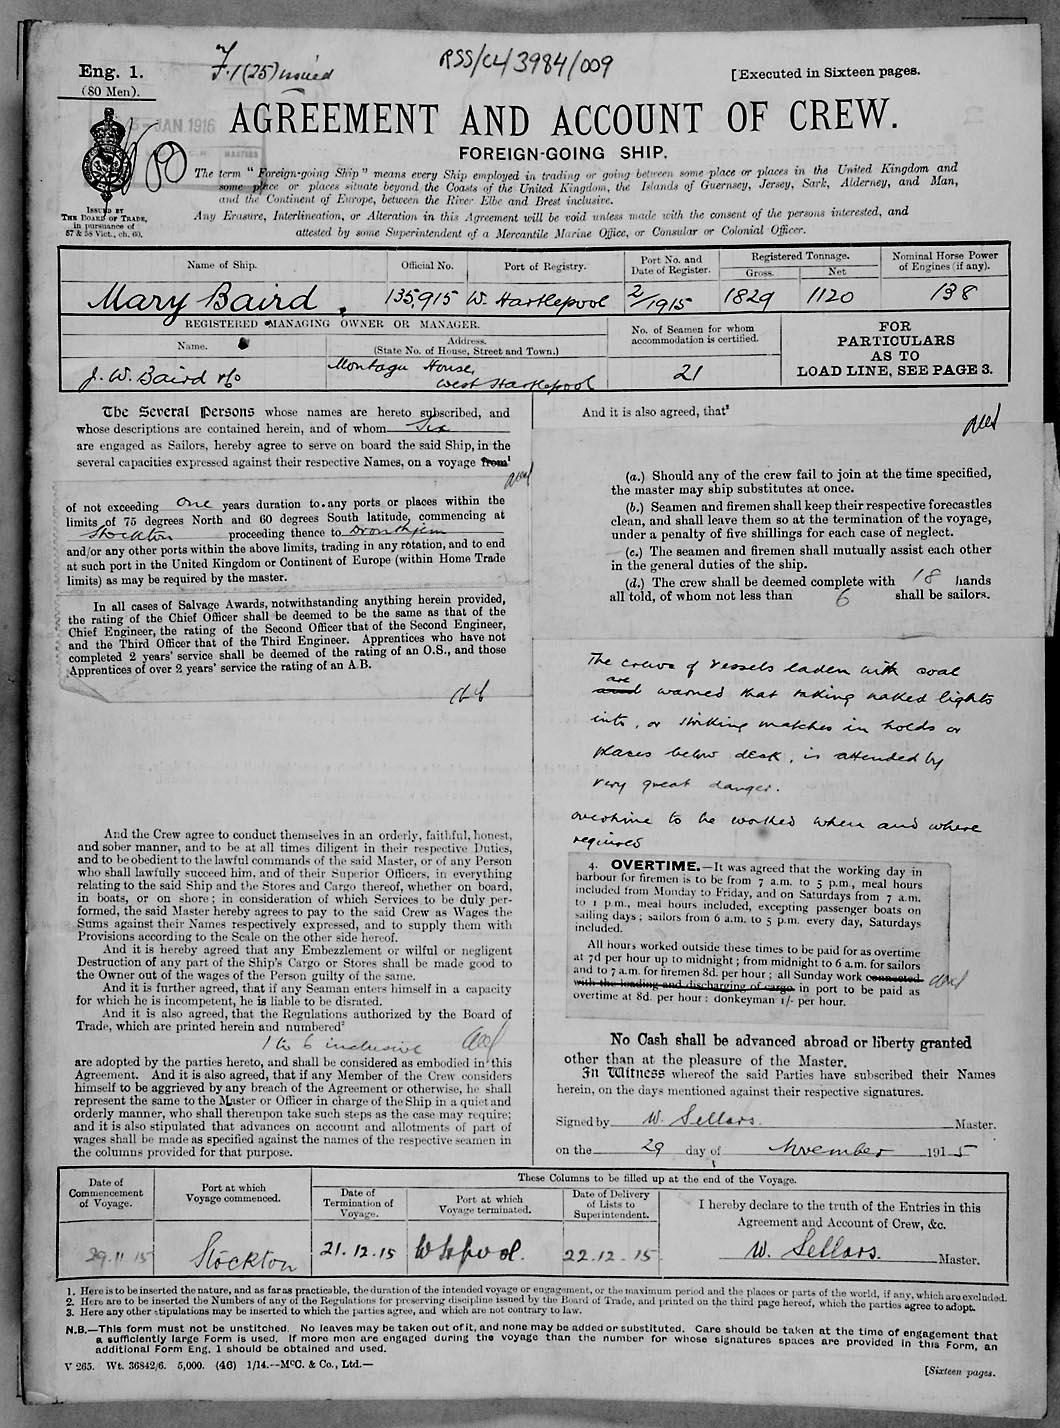 Eng. 1.
(80 Men).
F.1 (25) issued
RSS/CL/3984/009
[Executed in Sixteen pages.
3-JAN 1916
MASTERS
AGREEMENT AND ACCOUNT OF CREW.
FOREIGN-GOING SHIP.
ISSUED BY
THE BOARD OF TRADE,
in pursuance of
57 & 58 Vict., ch. 60.
The term "Foreign-going Ship" means every Ship employed in trading or going between some place or places in the United Kingdom and
some place or places situate beyond the Coasts of the United Kingdom, the Islands of Guernsey, Jersey, Sark, Alderney, and Man,
and the Continent of Europe, between the River Elbe and Brest inclusive.
Any Erasure, Interlineation, or Alteration in this Agreement will be void unless made with the consent of the persons interested, and
attested by some Superintendent of a Mercantile Marine Office, or Consular or Colonial Officer.
Name of Ship. Official No. Port of Registry. Port No. and Date of Register. Registered Tonnage. Gross. Net Nominal Horse Power of Engines (if any).
Mary Baird. 135,915 W. Hartlepool 2/1915 1829 1120 198
REGISTERED MANAGING OWNER OR MANAGER.
Name. Address. (State No. of House, Street and Town.)
No. of Seamen for whom accommodation is certified.
J. W. Baird & Co Montagu House, West Hartlepool 21
FOR
PARTICULARS
AS TO
LOAD LINE, SEE PAGE 3.
The Several Persons whose names are hereto subscribed, and
whose descriptions are contained herein, and of whom Six
are engaged as Sailors, hereby agree to serve on board the said Ship, in the
several capacities expressed against their respective Names, on a voyage from¹
of not exceeding One years duration to any ports or places within the
limits of 75 degrees North and 60 degrees South latitude, commencing at
Stockton proceeding thence to Drontheim
and/or any other ports within the above limits, trading in any rotation, and to end
at such port in the United Kingdom or Continent of Europe (within Home Trade
limits) as may be required by the master.
In all cases of Salvage Awards, notwithstanding anything herein provided,
the rating of the Chief Officer shall be deemed to be the same as that of the
Chief Engineer, the rating of the Second Officer that of the Second Engineer,
and the Third Officer that of the Third Engineer. Apprentices who have not
completed 2 years' service shall be deemed of the rating of an O.S., and those
Apprentices of over 2 years' service the rating of an A.B.
And the Crew agree to conduct themselves in an orderly, faithful, honest,
and sober manner, and to be at all times diligent in their respective Duties,
and to be obedient to the lawful commands of the said Master, or of any Person
who shall lawfully succeed him, and of their Superior Officers, in everything
relating to the said Ship and the Stores and Cargo thereof, whether on board,
in boats, or on shore; in consideration of which Services to be duly per-
formed, the said Master hereby agrees to pay to the said Crew as Wages the
Sums against their Names respectively expressed, and to supply them with
Provisions according to the Scale on the other side hereof.
And it is hereby agreed that any Embezzlement or wilful or negligent
Destruction of any part of the Ship's Cargo or Stores shall be made good to
the Owner out of the wages of the Person guilty of the same.
And it is further agreed, that if any Seaman enters himself in a capacity
for which he is incompetent, he is liable to be disrated.
And it is also agreed, that the Regulations authorized by the Board of
Trade, which are printed herein and numbered²
1 to 6 inclusive
are adopted by the parties hereto, and shall be considered as embodied in this
Agreement. And it is also agreed, that if any Member of the Crew considers
himself to be aggrieved by any breach of the Agreement or otherwise, he shall
represent the same to the Master or Officer in charge of the Ship in a quiet and
orderly manner, who shall thereupon take such steps as the case may require;
and it is also stipulated that advances on account and allotments of part of
wages shall be made as specified against the names of the respective seamen in
the columns provided for that purpose.
And it is also agreed, that³
(a.) Should any of the crew fail to join at the time specified,
the master may ship substitutes at once.
(b.) Seamen and firemen shall keep their respective forecastles
clean, and shall leave them so at the termination of the voyage,
under a penalty of five shillings for each case of neglect.
(c.) The seamen and firemen shall mutually assist each other
in the general duties of the ship.
(d.) The crew shall be deemed complete with 18 hands
all told, of whom not less than 6 shall be sailors.
The crews of vessels laden with coal
are
and warned that taking naked lights
into, or striking matches in holds or
places below deck, is attended by
very great danger.
overtime to be worked when and where
required
4. OVERTIME.—It was agreed that the working day in
harbour for firemen is to be from 7 a.m. to 5 p.m., meal hours
included from Monday to Friday, and on Saturdays from 7 a.m.
to 1 p.m., meal hours included, excepting passenger boats on
sailing days; sailors from 6 a.m. to 5 p.m. every day, Saturdays
included.
All hours worked outside these times to be paid for as overtime
at 7d per hour up to midnight; from midnight to 6 a.m. for sailors
and to 7 a.m. for firemen 8d. per hour; all Sunday work connected
with the loading and discharging of cargo in port to be paid as
overtime at 8d. per hour: donkeyman 1/- per hour.
No Cash shall be advanced abroad or liberty granted
other than at the pleasure of the Master.
In Witness whereof the said Parties have subscribed their Names
herein, on the days mentioned against their respective signatures.
Signed by W. Sellars. Master.
on the 29 day of November 1915
Date of Commencement of Voyage. Port at which Voyage commenced. These Columns to be filled up at the end of the Voyage.
Date of Termination of Voyage. Port at which Voyage terminated. Date of Delivery of Lists to Superintendent.
I hereby declare to the truth of the Entries in this
Agreement and Account of Crew, &c.
29.11.15 Stockton 21.12.15 W Hpool. 22.12.15 W. Sellars. Master.
1. Here is to be inserted the nature, and as far as practicable, the duration of the intended voyage or engagement, or the maximum period and the places or parts of the world, if any, which are excluded.
2. Here are to be inserted the Numbers of any of the Regulations for preserving discipline issued by the Board of Trade, and printed on the third page hereof, which the parties agree to adopt.
3. Here any other stipulations may be inserted to which the parties agree, and which are not contrary to law.
N.B.—This form must not be unstitched. No leaves may be taken out of it, and none may be added or substituted. Care should be taken at the time of engagement that
a sufficiently large Form is used. If more men are engaged during the voyage than the number for whose signatures spaces are provided in this Form, an
additional Form Eng. 1 should be obtained and used.
V 265. Wt. 36842/6. 5,000. (46) 1/14.--McC. & Co., Ltd.—
[Sixteen pages.